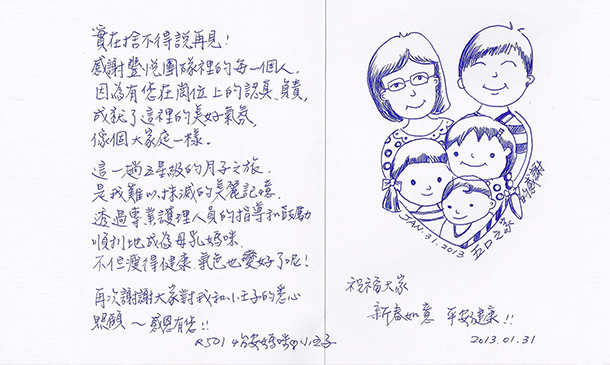 實在捨不得說再見!
感謝豐悅團隊裡的每一個人,
因為有您在崗位上的認真、負責,
成就了這裡的美好氣氛
像個大家庭一樣。
這一趟五星級的月子之旅,
是我難以抹滅的美麗記憶,
透過專業護理人員的指導和鼓勵
順利地成為母乳媽咪,
不但獲得健康,氣色也變好了呢!
再次謝謝大家對我和小王子的悉心
照顧~感恩有您!!
R501 媽咪 小王子
JAN.31.2013
五口之家
的感謝
祝福大家
新春如意 平安健康!!
2013.01.31